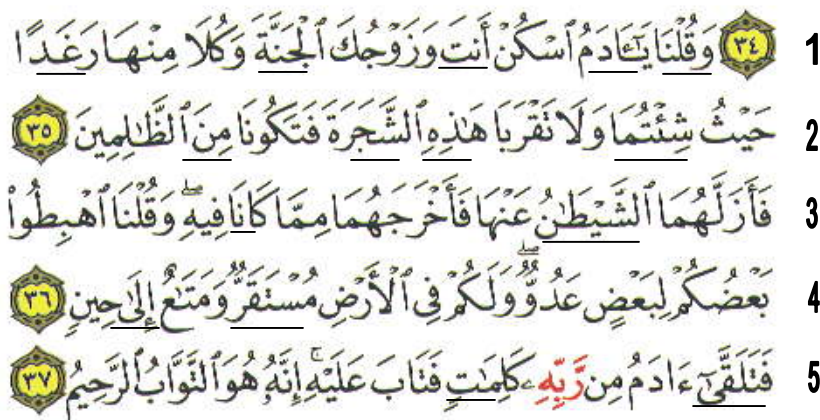 ﴿٣٤﴾ وَقُلْنَا يَـٰٓـَٔادَمُ ٱسْكُنْ أَنتَ وَزَوْجُكَ ٱلْجَنَّةَ وَكُلَا مِنْهَا رَغَدًا 1
حَيْثُ شِئْتُمَا وَلَا تَقْرَبَا هَـٰذِهِ ٱلشَّجَرَةَ فَتَكُونَا مِنَ ٱلظَّـٰلِمِينَ ﴿٣٥﴾ 2
فَأَزَلَّهُمَا ٱلشَّيْطَـٰنُ عَنْهَا فَأَخْرَجَهُمَا مِمَّا كَانَا فِيهِ ۖ وَقُلْنَا ٱهْبِطُوا۟ 3
بَعْضُكُمْ لِبَعْضٍ عَدُوٌّ ۖ وَلَكُمْ فِى ٱلْأَرْضِ مُسْتَقَرٌّ وَمَتَـٰعٌ إِلَىٰ حِينٍ ﴿٣٦﴾ 4
فَتَلَقَّىٰٓ ءَادَمُ مِن رَّبِّهِۦ كَلِمَـٰتٍ فَتَابَ عَلَيْهِ ۚ إِنَّهُۥ هُوَ ٱلتَّوَّابُ ٱلرَّحِيمُ ﴿٣٧﴾ 5